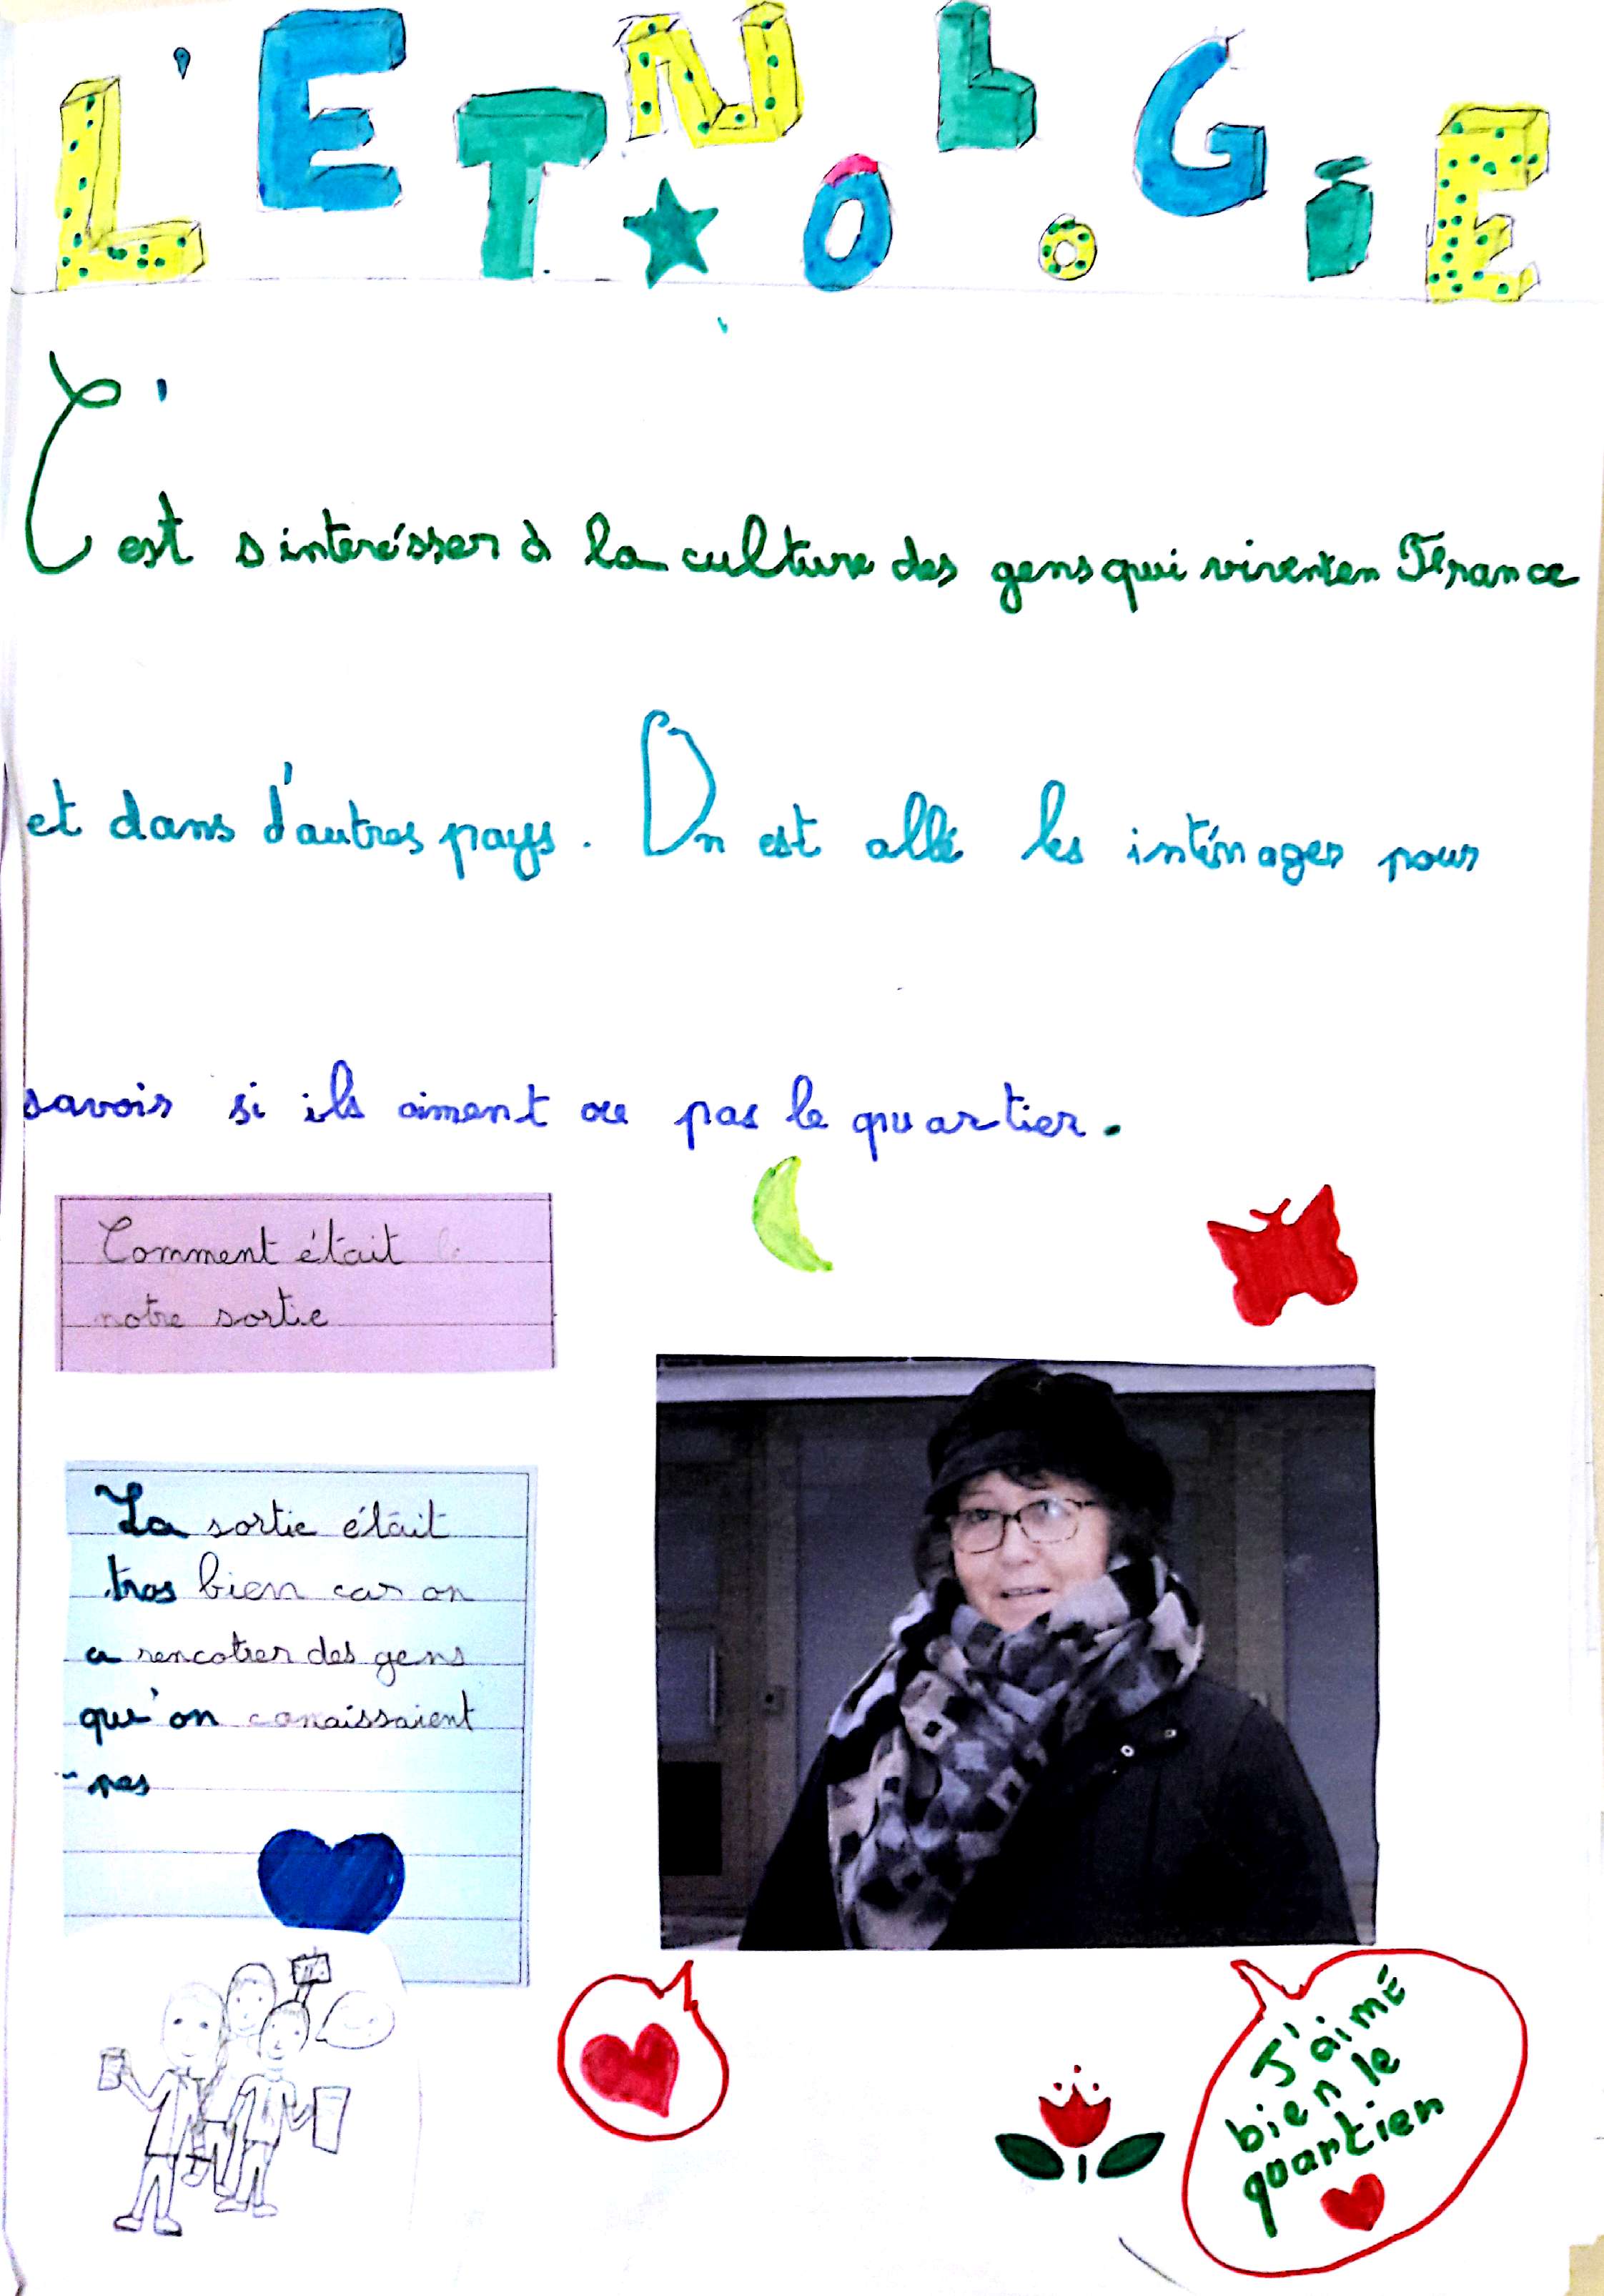 L'ETNOLOGIE
C'est s'interésser à la culture des gens qui vivent en France
et dans d'autres pays. On est allé les intérroger pour
savoir si ils aiment ou pas le quartier.
Comment était
notre sortie
La sortie était
tres bien car on
a rencotrer des gens
qu'on conaissaient
pas
J'aime
bien le
quartier